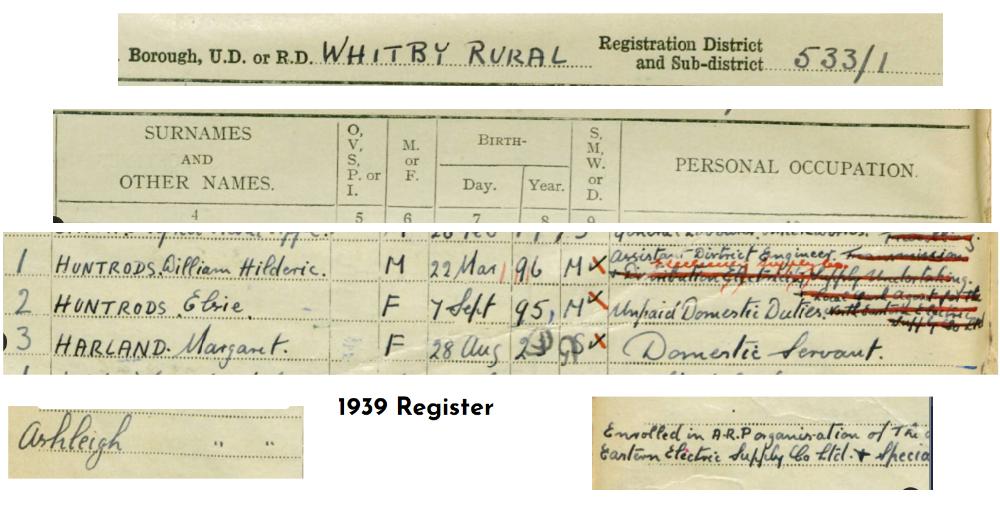 Borough, U.D. or R.D. WHITBY RURAL Registration District and Sub-district 533/1
SURNAMES AND OTHER NAMES. O, V, S, P. or I. M. or F. BIRTH- Day. Year. S, M, W. or D. PERSONAL OCCUPATION.
4 5 6 7 8 9
1 HUNTRODS. William Hilderic. M 22 Mar 96 M Assistant District Engineer. Transmission
+ Distribution Electricity Supply Undertaking.
2 HUNTRODS Elsie. F 7 Sept 95, M Unpaid Domestic Duties.
Supply Co Ltd
3 HARLAND. Margaret. F 28 Aug S Domestic Servant.
1939 Register
Ashleigh " "
Enrolled in A.R.P organisation of The
Eastern Electric Supply Co Ltd. + Specia